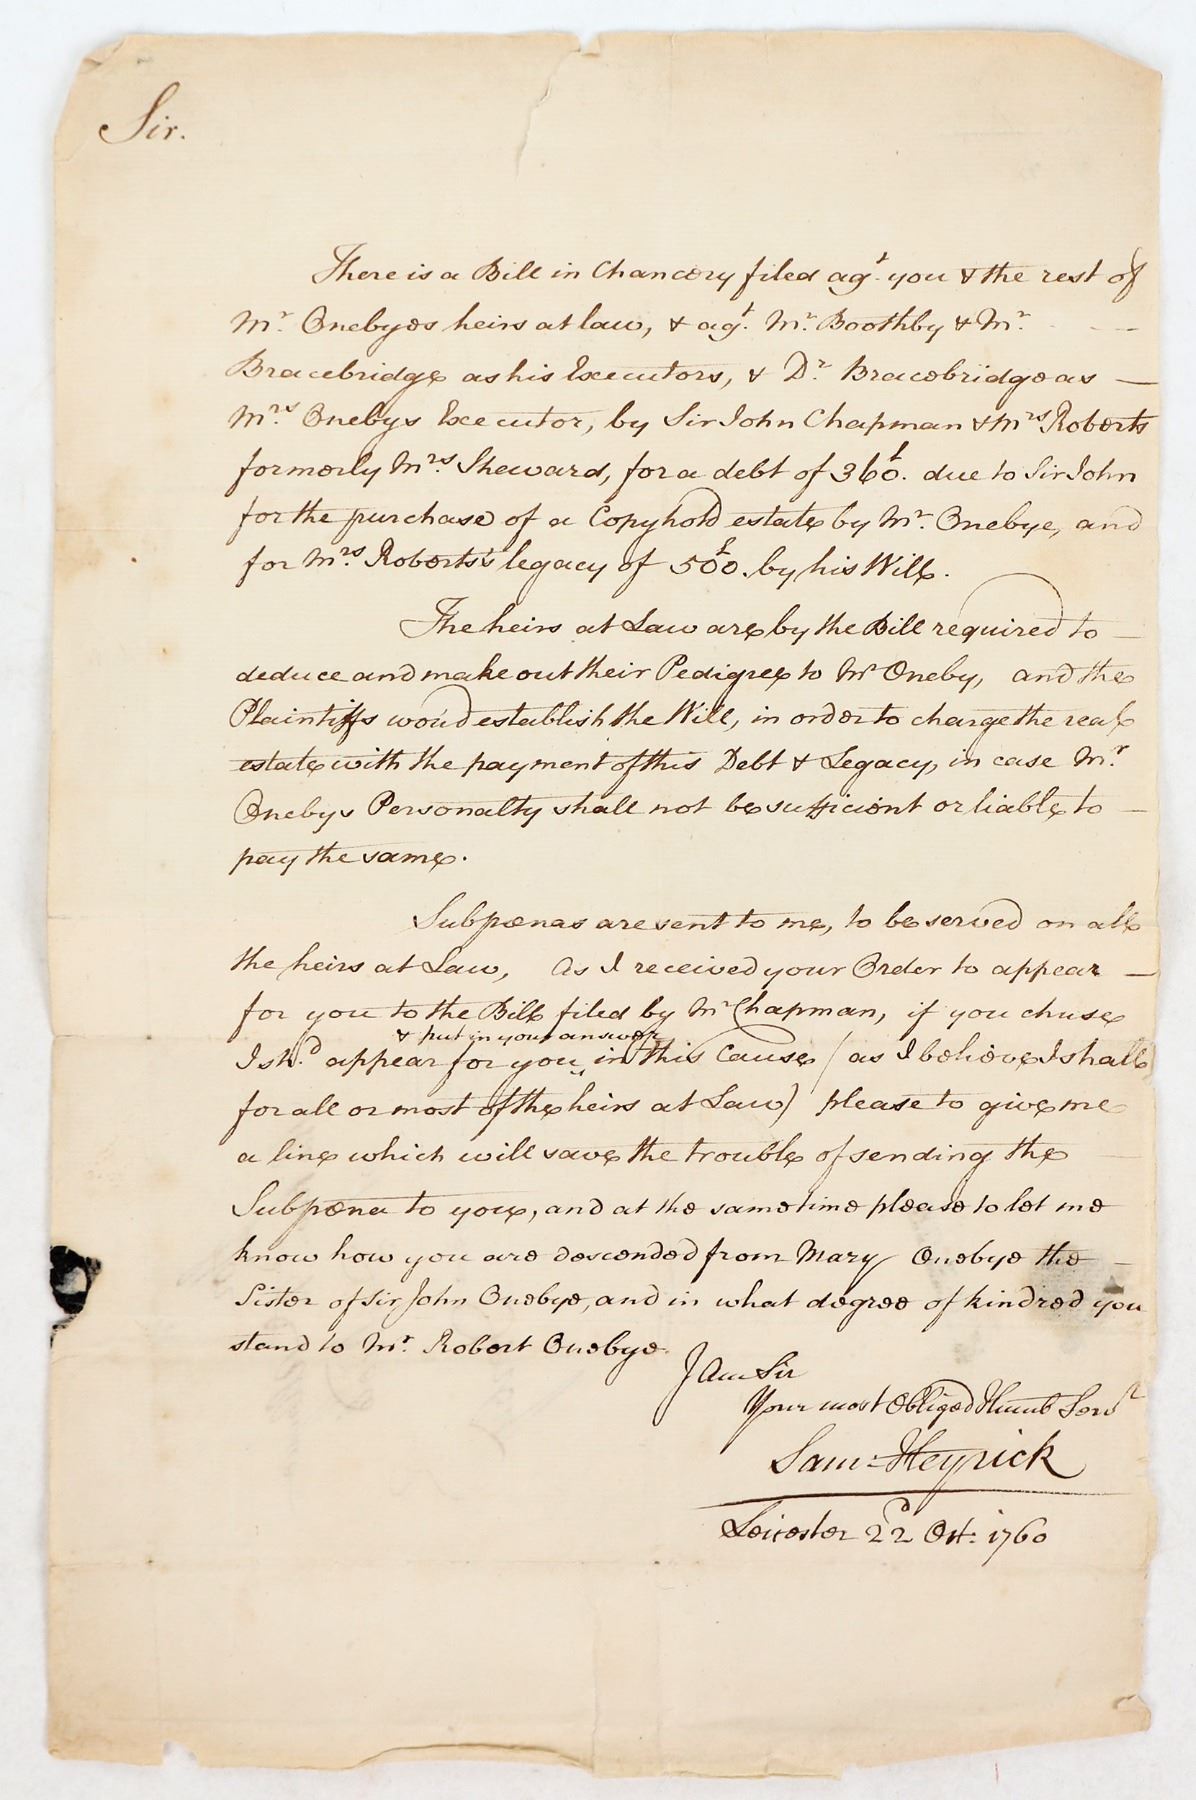 Sir.
There is a Bill in Chancery filed agt. you & the rest of
Mr. Onebyes heirs at law, & agt. Mr. Boothby & Mr.
Bracebridge as his Executors, & Dr. Bracebridge as —
Mrs. Onebys Executor, by Sir John Chapman & Mrs Roberts
formerly Mrs. Sheward, for a debt of 360£. due to Sir John
for the purchase of a Copyhold estate by Mr. Onebye, and
for Mrs. Roberts's legacy of 500£. by his Will.
The heirs at Law are by the Bill required to —
deduce and make out their Pedigree to Mr Oneby, and the
Plaintiffs wou'd establish the Will, in order to charge the real
estate with the payment of this Debt & Legacy, in case Mr.
Onebys Personalty shall not be sufficient or liable to —
pay the same.
Subpœnas are sent to me, to be served on all
the heirs at Law, As I received your Order to appear —
for you to the Bill filed by Mr Chapman, if you chuse
& put in your answer
I sh.d appear for you in this Cause (as I believe I shall
for all or most of the heirs at Law) please to give me
a line which will save the trouble of sending the
Subpœna to you, and at the same time please to let me
know how you are descended from Mary Onebye the —
Sister of Sir John Onebye, and in what degree of kindred you
stand to Mr. Robert Onebye.
I am Sir
Your most Obliged Humb Servt
Sam: Heyrick
Leicester 22d Oct: 1760